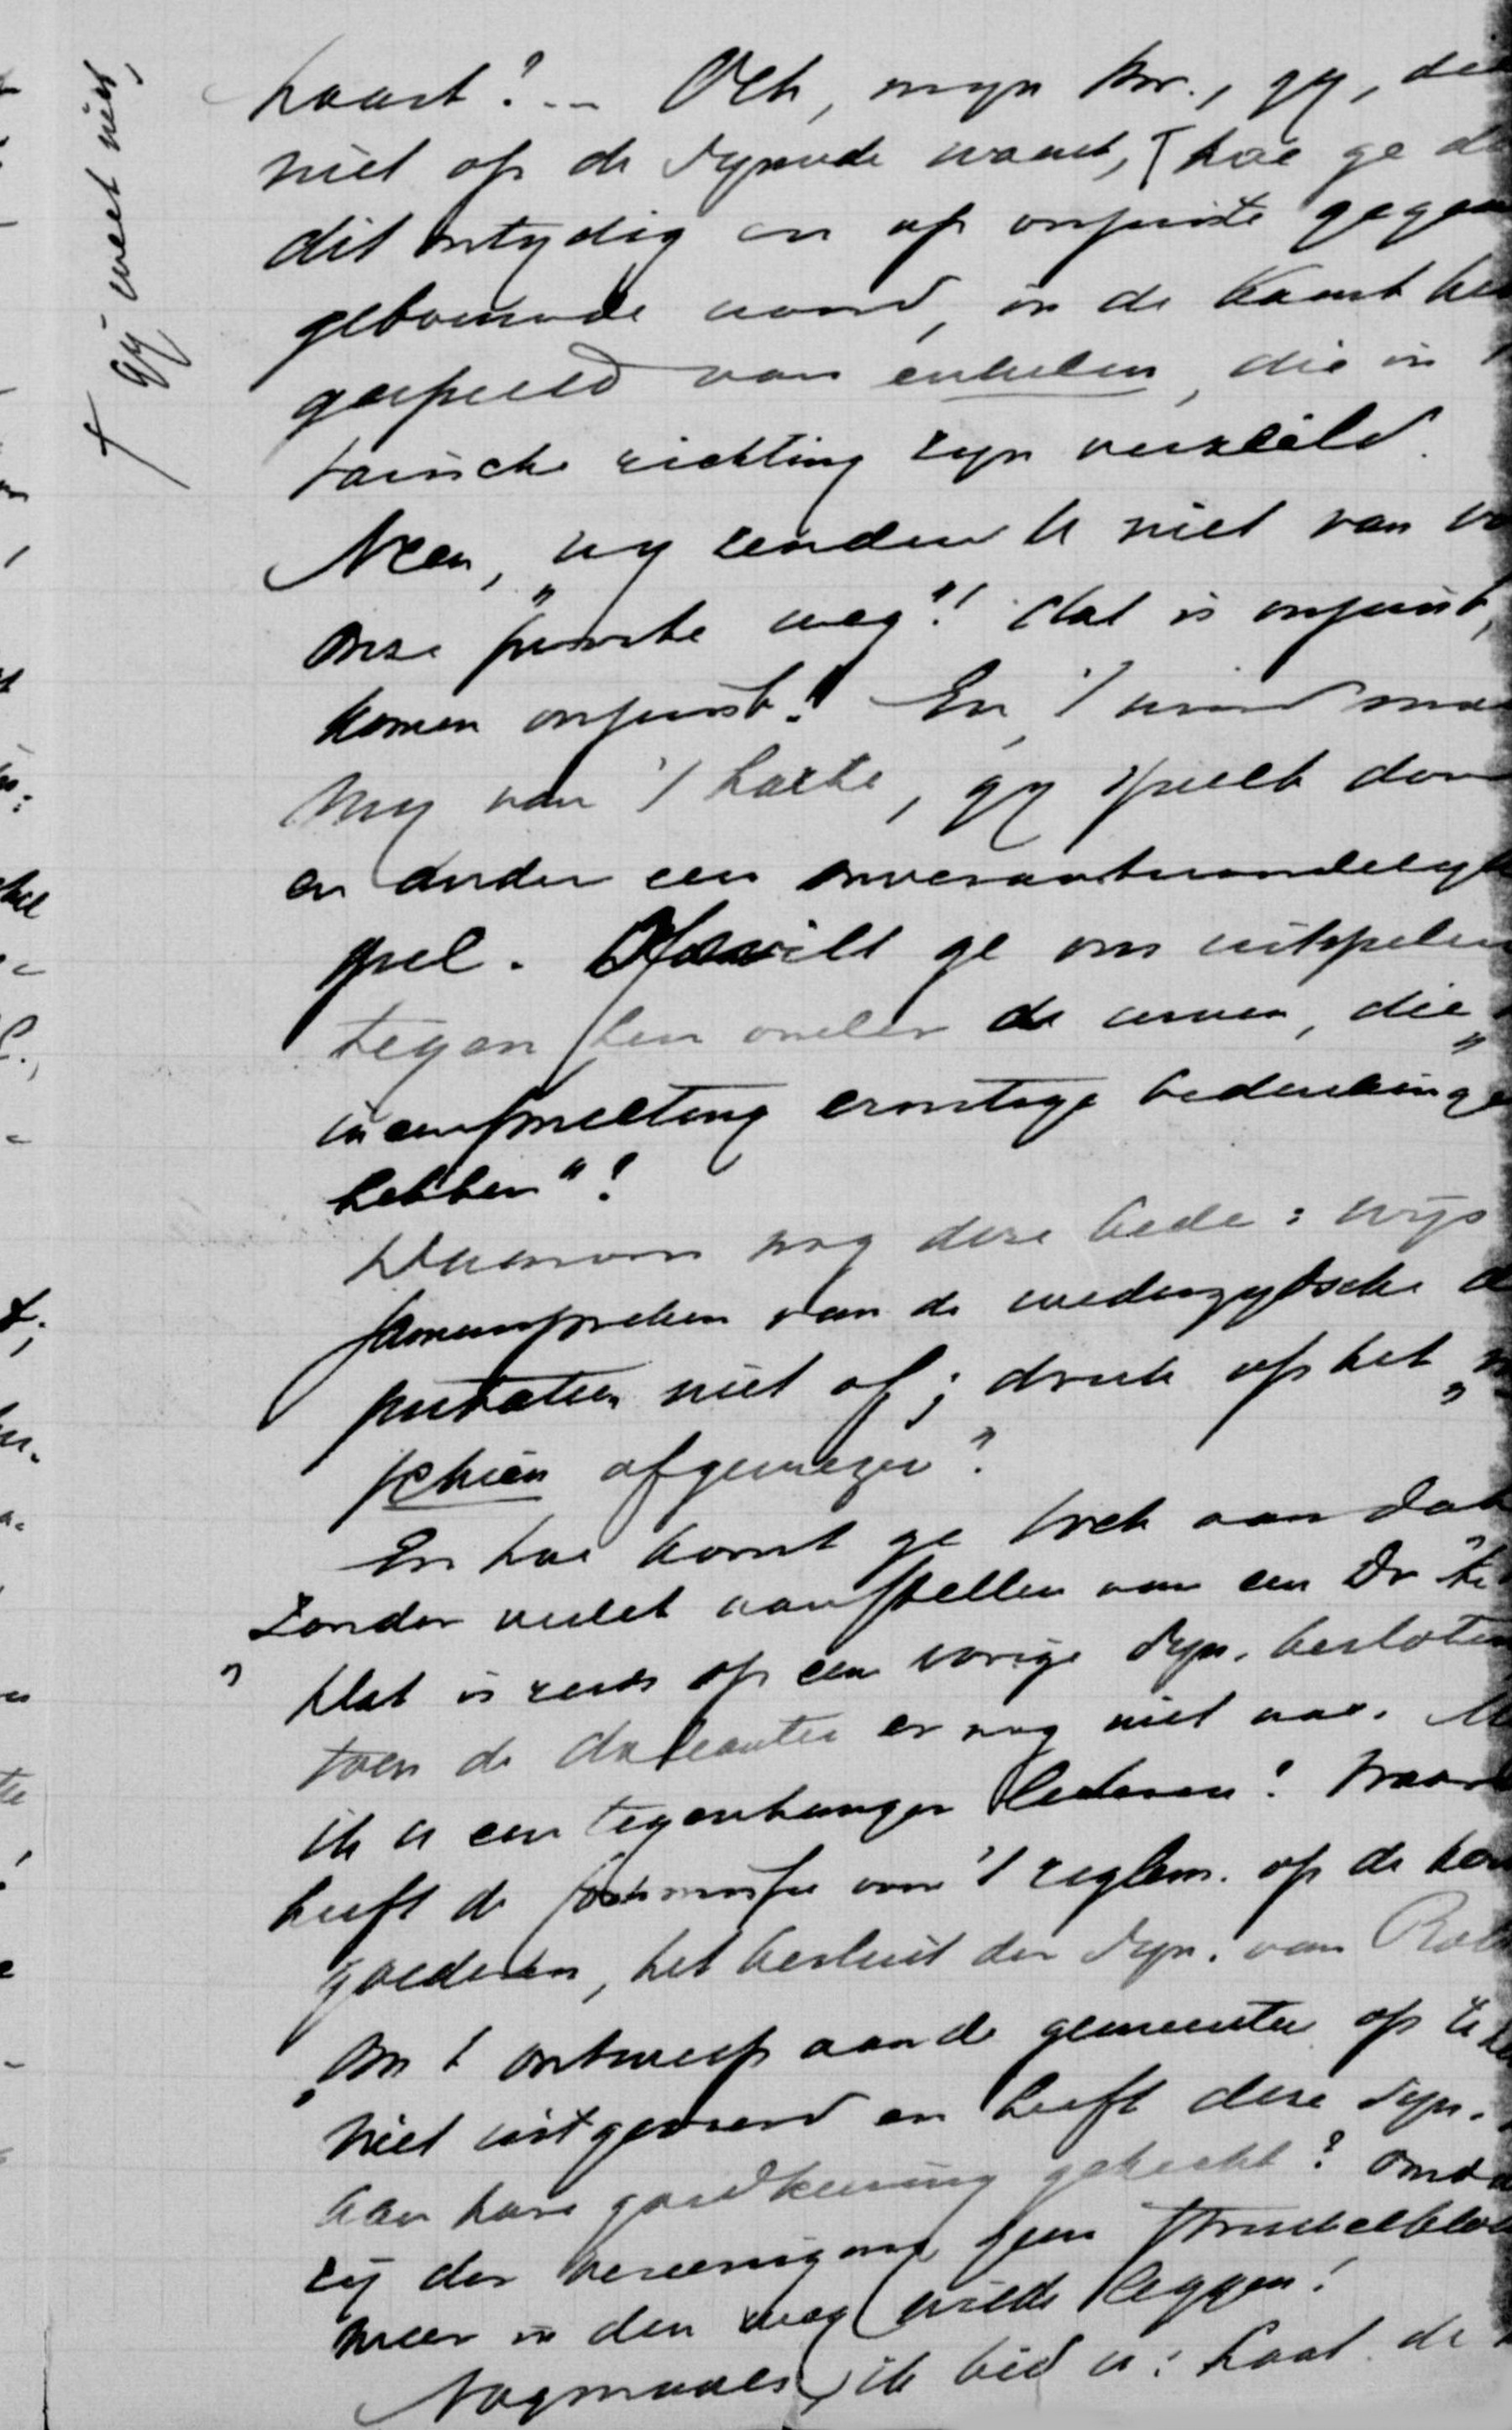 † gij weet niet,
haast? -- Och, myn br., gy, die
niet op de Synode waart, † hoe ge de
dit ontydig en op onjuiste gegev
gebouwde woord, in de kaart he
gespeeld van enkelen, die in
taische richting zyn verzeild.
Neen, wy zenden U niet van va
onze „juiste weg"! dat is onjuist,
komen onjuist! En, 't wind moe
my van 't harte, gy speelt door
en ander een onverantwoordelyk
spel. Of wilt ge ons uitspelen
tegen hen onder de uwen, die „
ineensmelting ernstige bedenkinge
hebben"?
Daarom nog deze bede: wijs
samenspreken van de wederzydsche de
putatien niet af; druk op het „m
schien afgewezen".
En hoe komt ge toch aan dat
„zonder verlet aanstellen van een Dr"
Dat is reeds op een vorige Syn. besloten
toen de doleantie er nog niet was. M
ik u een tegenhanger leveren? Waaro
heeft de Commissie voor 't reglem. op de ker
goederen, het besluit der Syn. van Rott
„om 't ontwerp aan de gemeenten op te
niet uitgevoerd en heeft deze Syn.
aan hare goedkeuring gehecht? Omda
zij der vereeniging geen struikelblok
meer in den weg wilde leggen!
Nogmaals, ik bid u: haal de